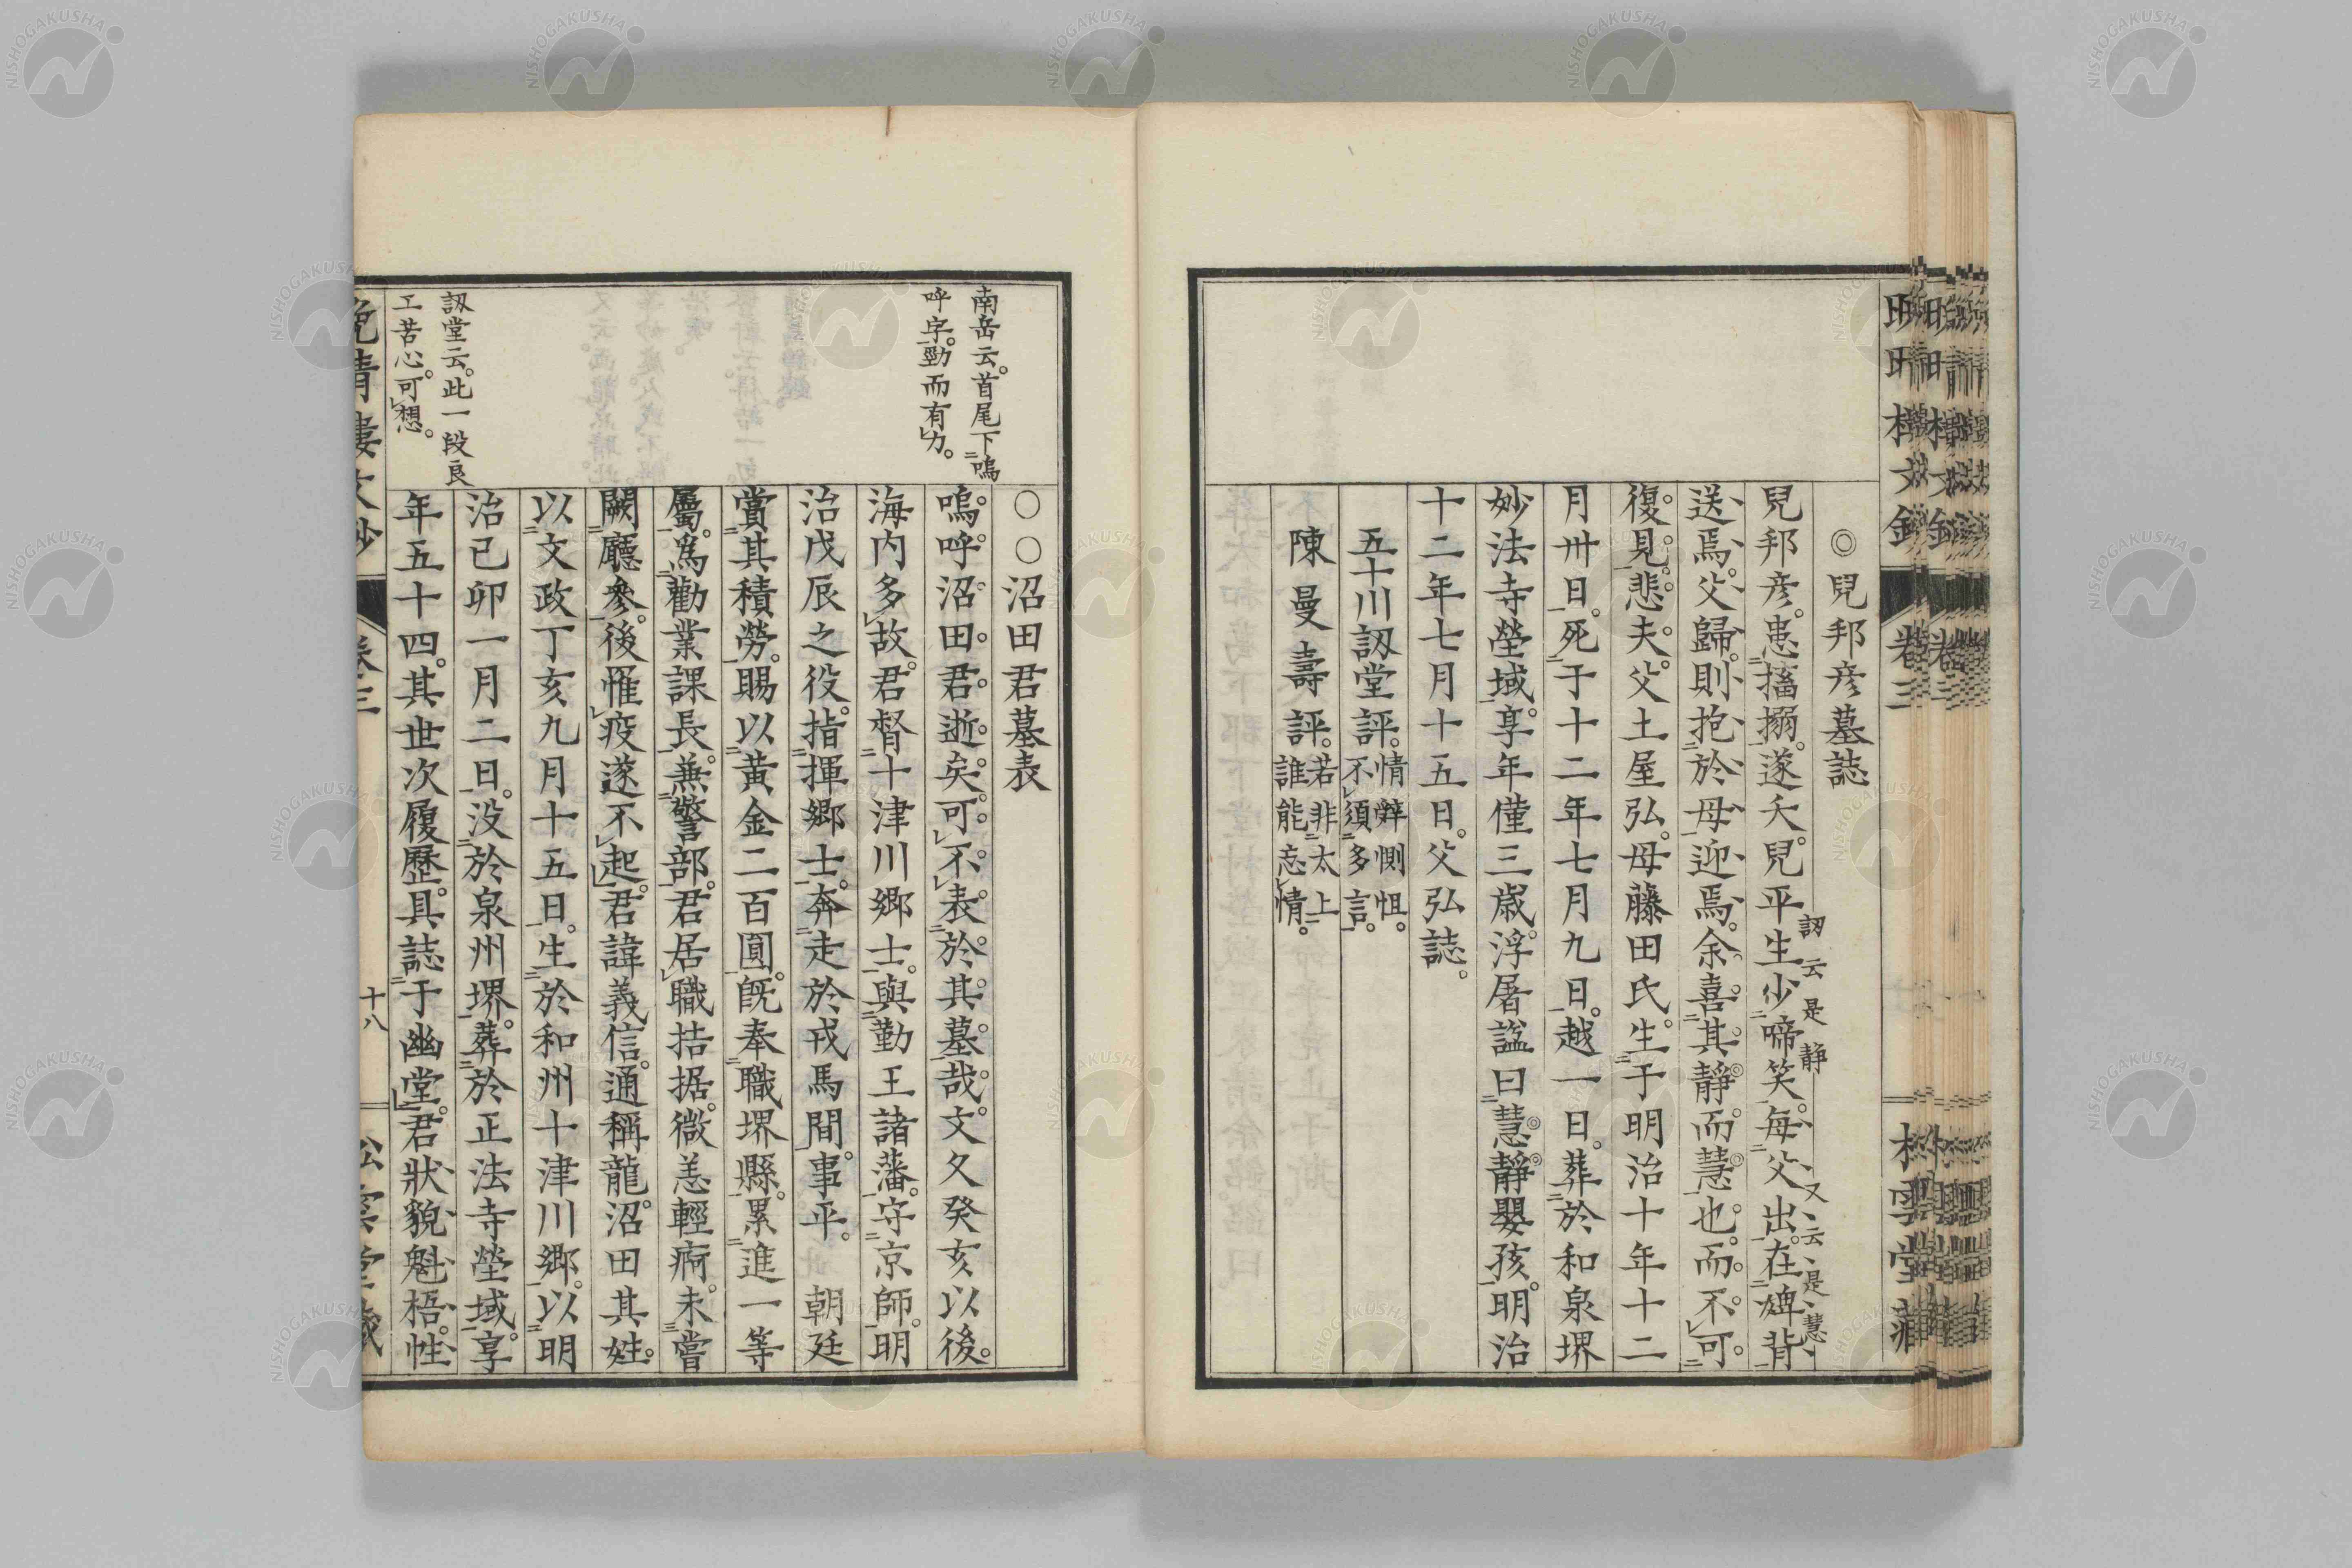 ◎兒邦彦墓誌
兒邦彦。患搐搦。遂夭。兒平生少啼笑。毎父出。在婢背
訒云是静
又云是慧
送焉。父歸。則抱於母迎焉。余喜其靜而慧也。而不可
復見。悲夫。父土屋弘。母藤田氏。生于明治十年十二
月卅日。死于十二年七月九日。越一日。葬於和泉堺
妙法寺塋域。享年僅三歳。浮屠諡曰慧靜嬰孩。明治
十二年七月十五日。父弘誌。
五十川訒堂評。情辭惻怛。不須多言。
陳曼壽評。若非太上。誰能忘情。
南岳云。首尾下嗚
呼字。勁而有力。
訒堂云。此一段良
工苦心。可想。
○○沼田君墓表
嗚呼沼田君逝矣。可不表於其墓哉。文久癸亥以後。
海内多故。君督十津川郷士。與勤王諸藩。守京師。明
治戊辰之役。指揮郷士。奔走於戎馬間。事平。 朝廷
賞其積勞。賜以黃金二百圓。既奉職堺縣。累進一等
屬。爲勸業課長。兼警部。君居職拮据。微恙輕痾。未嘗
闕廳參。後罹疫遂不起。君諱義信。通稱龍。沼田其姓。
以文政丁亥九月十五日。生於和州十津川郷。以明
治己卯一月二日。没於泉州堺。葬於正法寺塋域。享
年五十四。其世次履歷。具誌于幽堂。君狀貌魁梧。性
晩晴樓文鈔 卷三 十八 松雲堂藏